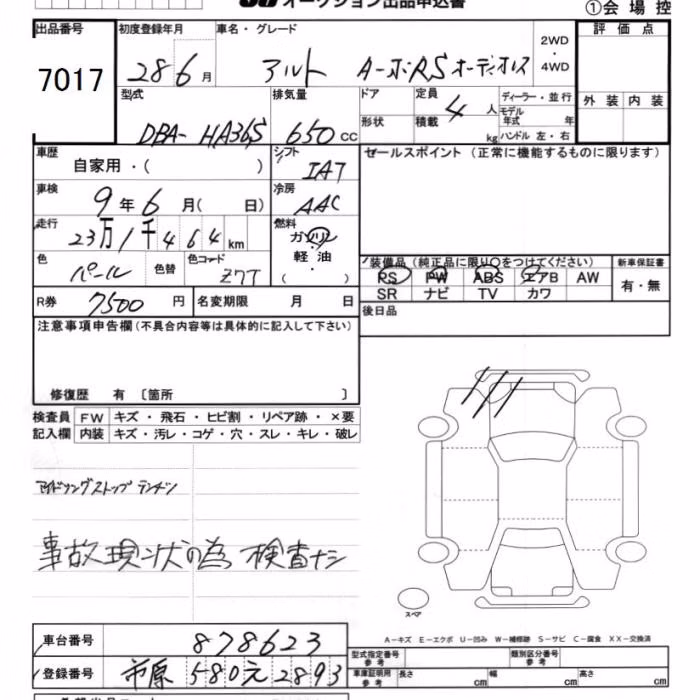 オークション出品申込書
①会場控
出品番号 初度登録年月 車名・グレード 評価点
7017 28 6月 アルト ターボRS オーディオレス 2WD・4WD
型式 排気量 ドア 定員 4人 ディーラー・並行 外装 内装
DBA-HA36S 650cc 形状 積載 kg モデル年式 年 ハンドル 左・右
車歴 自家用・( ) シフト IAT セールスポイント(正常に機能するものに限ります)
車検 9年6月( 日) 冷房 AAC
走行 23万1千464km 燃料 ガソリン・軽油・( )
色 パール 色替 色コード Z7T 装備品(純正品に限り○をつけてください) 新車保証書
PS PW ABS エアB AW 有・無
SR ナビ TV カワ
R券 7500円 名変期限 月 日 後日品
注意事項申告欄(不具合内容等は具体的に記入して下さい)
修復歴 有〔箇所 〕
検査員 FW キズ・飛石・ヒビ割・リペア跡・×要
記入欄 内装 キズ・汚レ・コゲ・穴・スレ・キレ・破レ
アイドリングストップ テンテン
事故現状の為 検査ナシ
スペア
A-キズ E-エクボ U-凹み W-補修跡 S-サビ C-腐食 XX-交換済
車台番号 878623 型式指定番号 参考 類別区分番号 参考
登録番号 市原 580 え 2893 車庫証明用 参考 長さ cm 幅 cm 高さ cm